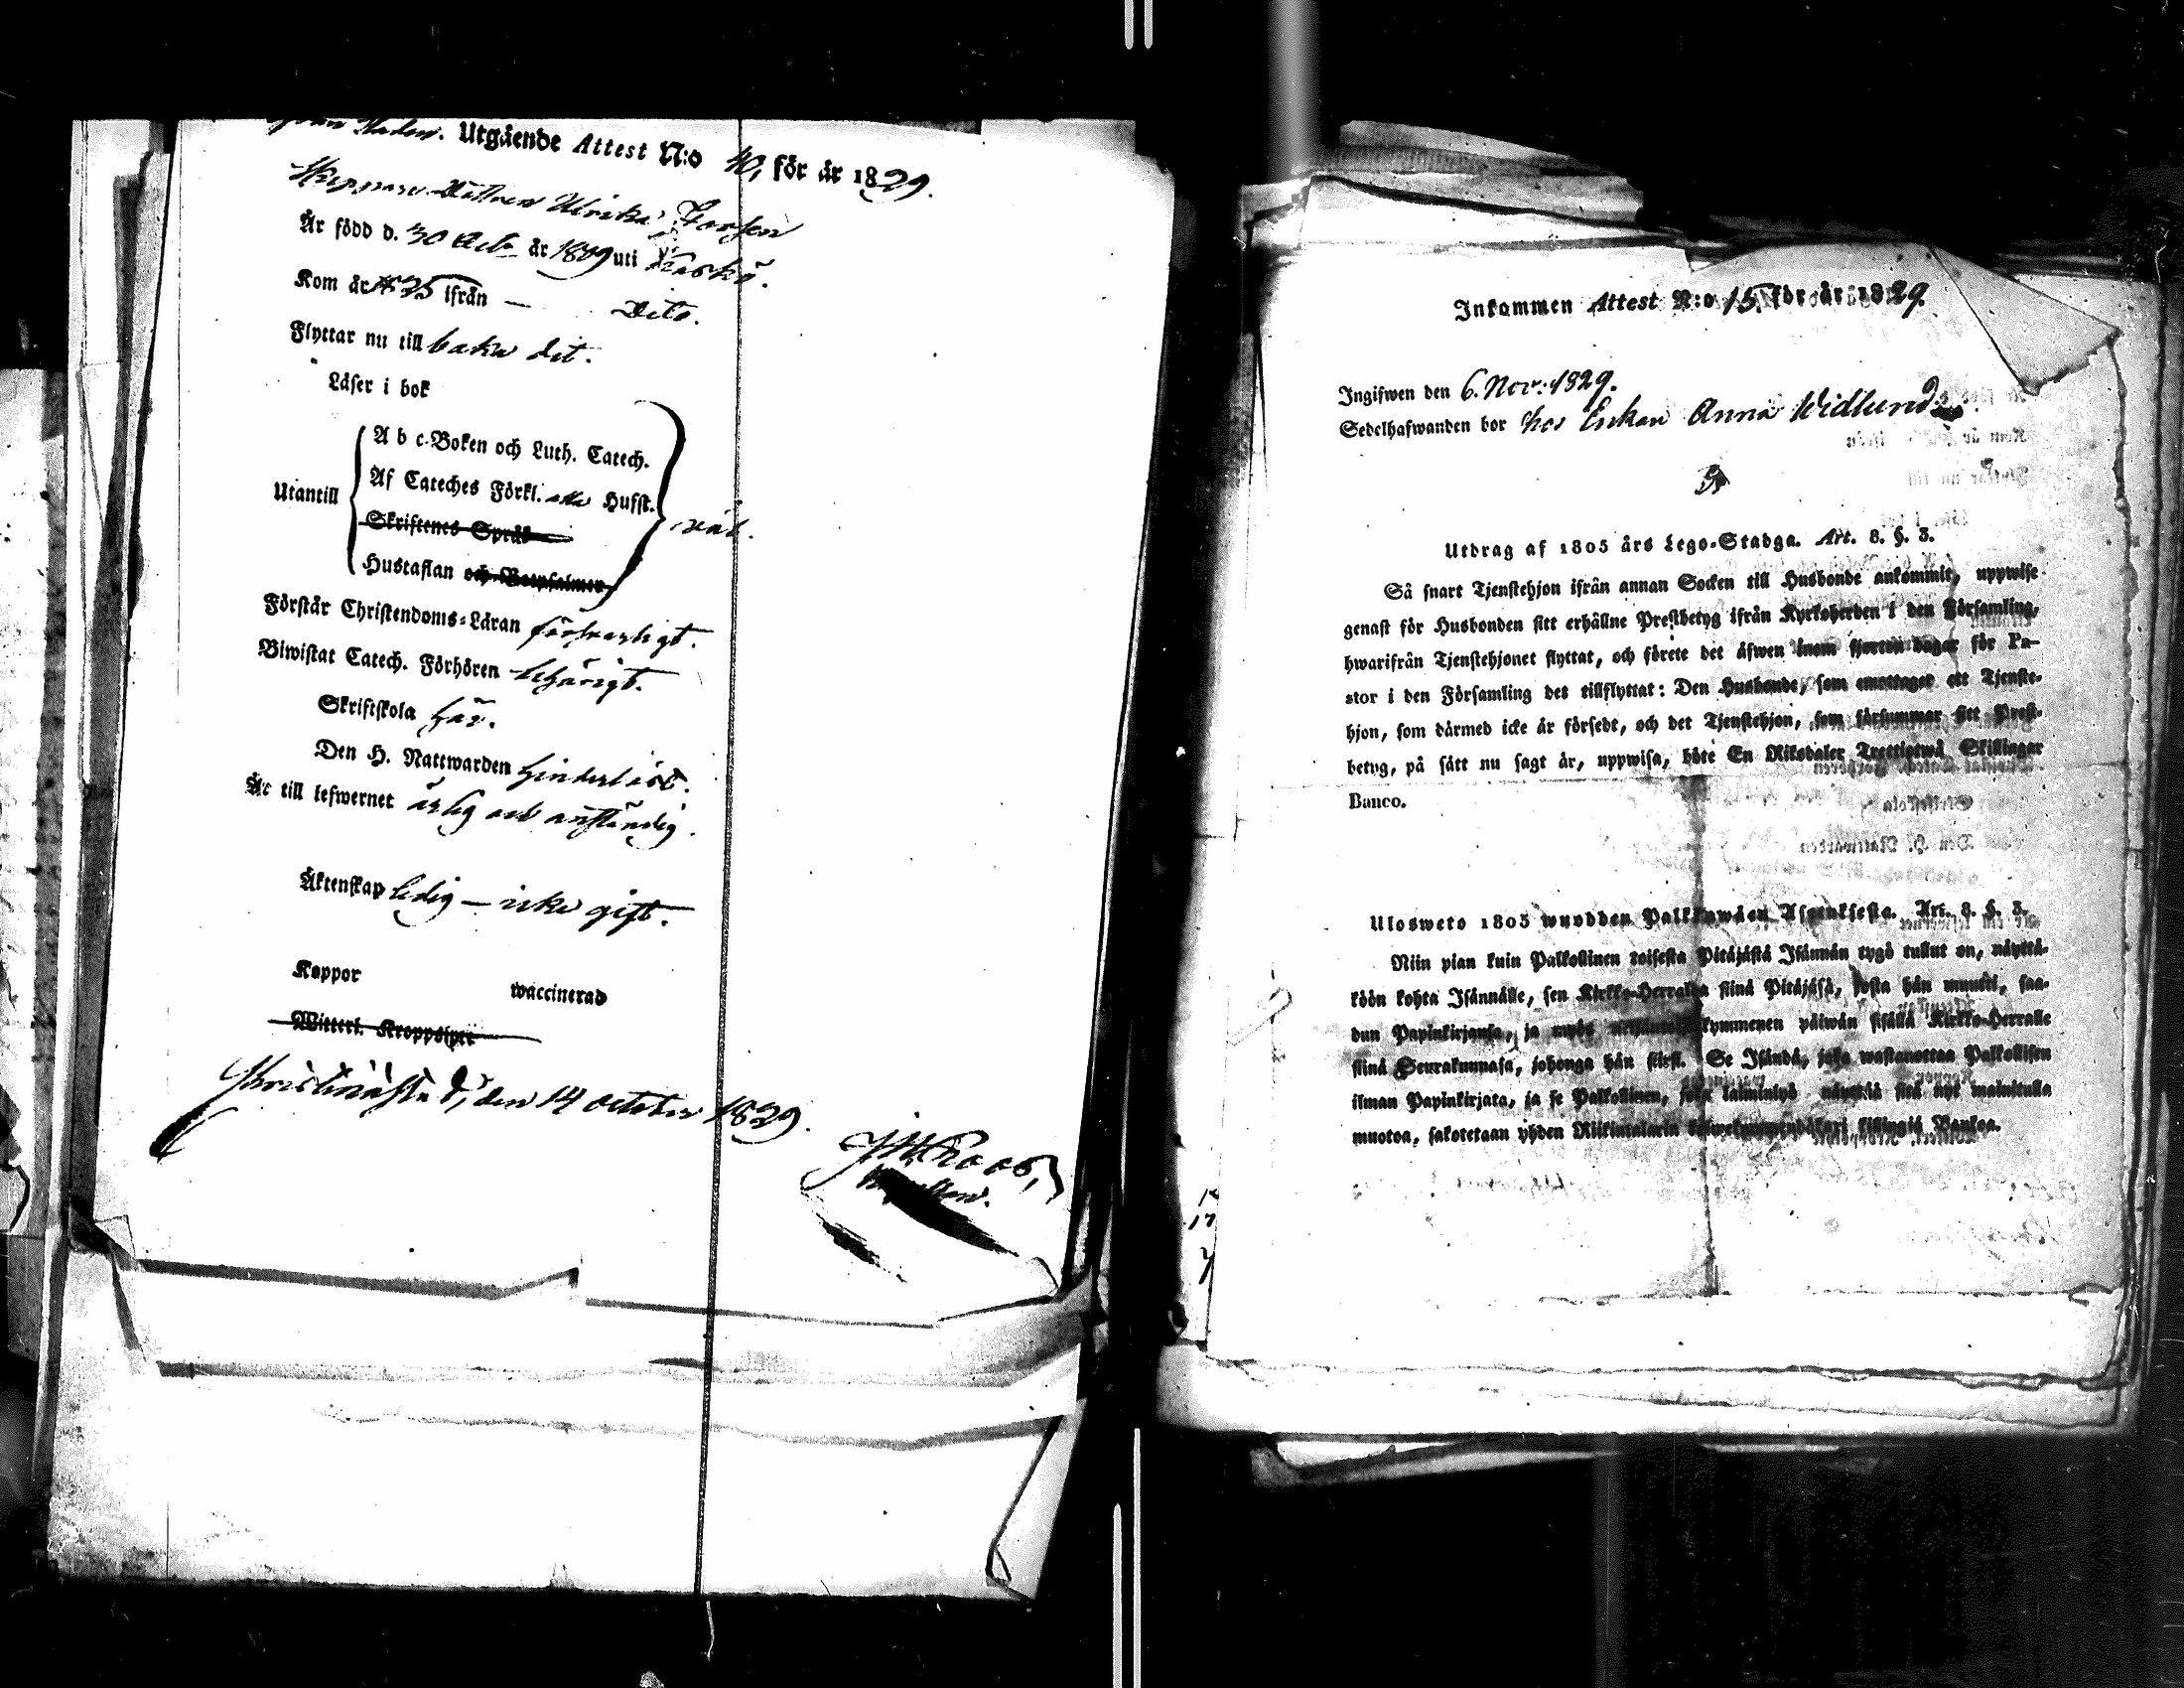 Utgående Attest N:o 40, för år 1829.
Skeppare dottren Ulrika Forssén
År född d. 30 Octb. år 1809 uti Kaskö.
Kom år 1825 ifrån — Dito.
Flyttar nu till baka dit.
Läser i bok
A b c-Boken och Luth. Catech.
Af Cateches Förkl. Hufst.
Utantill
Skriftenes Språk
Hustaflan och Botpsalmer
väl.
Förstår Christendoms-Läran försvarligt.
Biwistat Catech. Förhören behörigt.
Skriftskola här.
Den H. Nattwarden hinderlöst.
Är till lefwernet ärlig och anständig.
Äktenskap ledig — icke gift.
Koppor waccinerad
Witterl. Kroppslyte
Christinæstad, den 14 october 1829.
Inkommen Attest N:o 15. för år 1829.
Ingifwen den 6. Nov: 1829.
Sedelhafwanden bor hos Enkan Anna Widlund
Utdrag af 1805 års Lego-Stadga. Art. 8. §. 3.
Så snart Tjenstehjon ifrån annan Socken till Husbonde ankommit, uppwise
genast för Husbonden sitt erhållne Prestbetyg ifrån Kyrkoherden i den Församling,
hwarifrån Tjenstehjonet flyttat, och förete det äfwen inom fjorton dagar för Pa-
stor i den Församling det tillflyttat: Den Husbonde, som emottager ett Tjenste-
hjon, som dårmed icke år försedt, och det Tjenstehjon, som försummar sitt Prest-
betyg, på sått nu sagt år, uppwisa, böte En Riksdaler Trettiotwå Skillingar
Banco.
Ulosweto 1805 wuodden Palkkawäen Asetuksesta. Art. 8. §. 3.
Niin pian kuin Palkollinen toisesta Pitäjästä Isännän tygö tullut on, näyttä-
köön kohta Isännälle, sen Kirkko-Herralda siinä Pitäjäsä, josta hän muutti, saa-
dun Papinkirjansa, ja myös neljäntoistakymmenen päiwän sisällä Kirkko-Herralle
siinä Seurakunnasa, johonga hän siirsi. Se Isändä, joka wastanottaa Palkollisen
ilman Papinkirjata, ja se Palkollinen, joka laiminlyö näyttää sitä nyt mainitulla
muotoa, sakotetaan yhden Riikintalarin kolmekymmendäkaxi killingiä Bankoa.